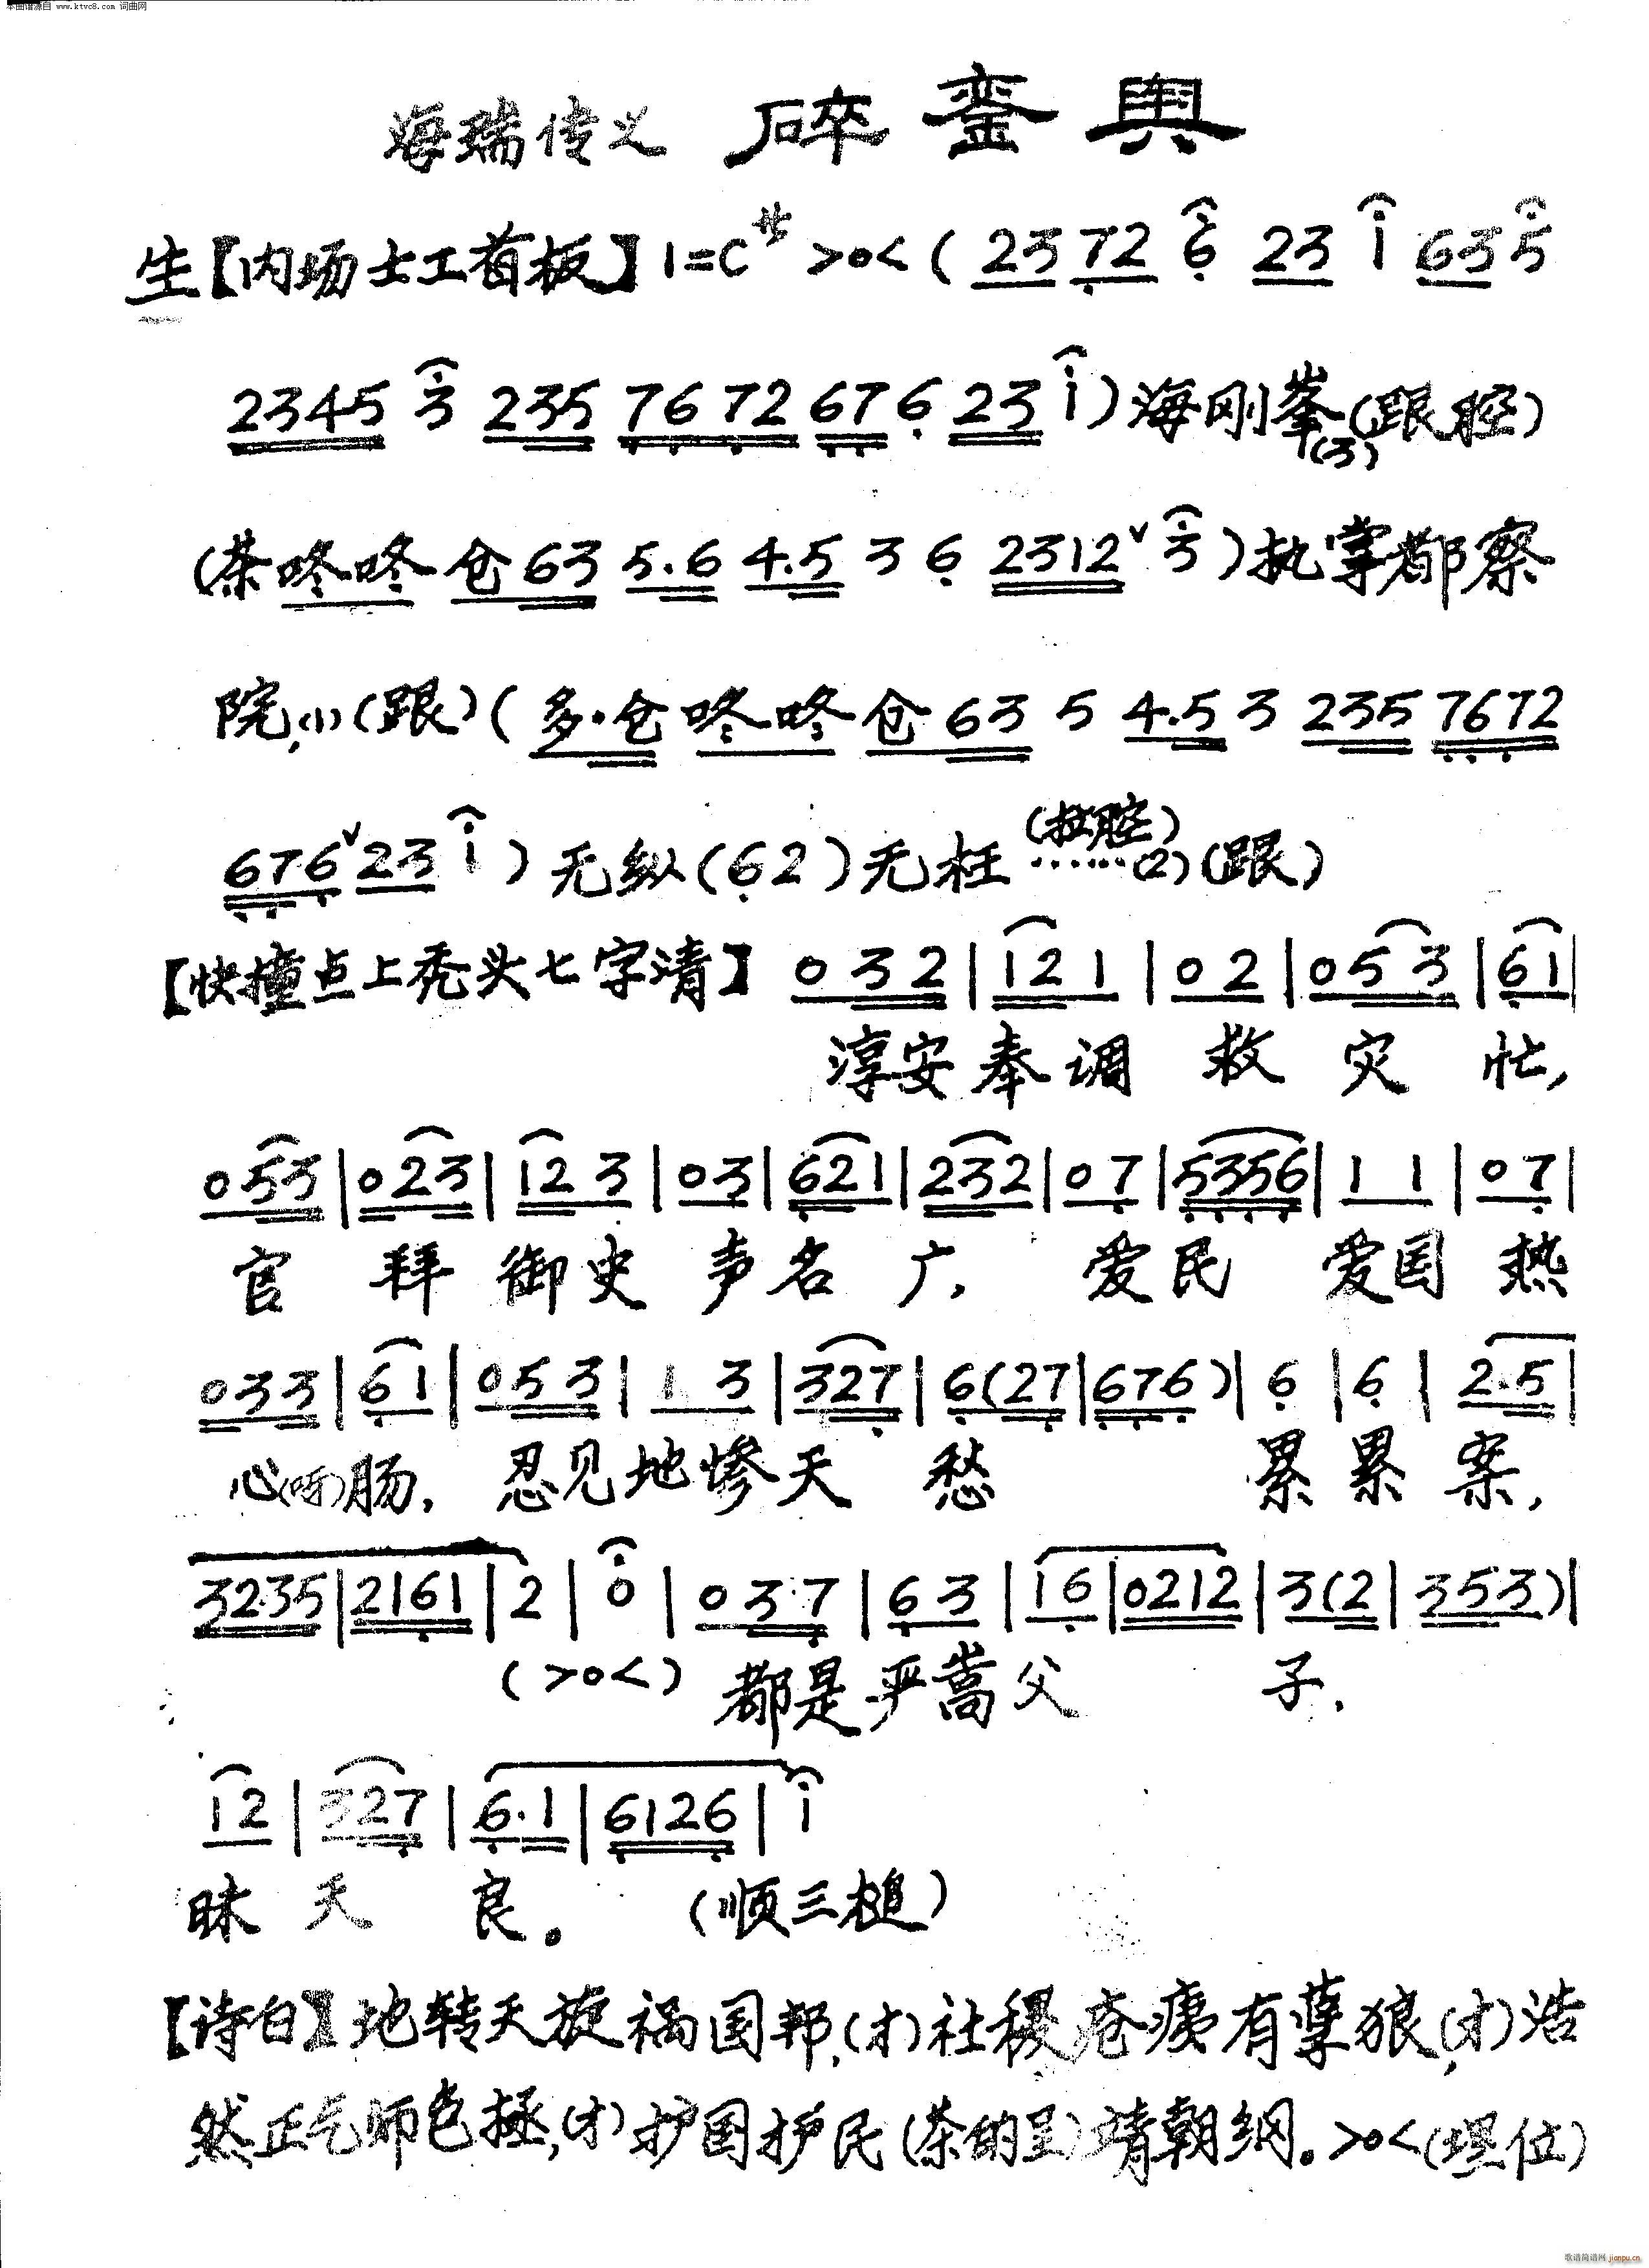 本曲谱源自 www.ktvc8.com 词曲网
海瑞传义 碎銮舆
生【内场士工首板】1=C サ >0<（2372 6 23 i 635
2345 3 235 7672 676 23 i）海刚峯(3)（跟腔）
（茶咚咚仓63 5.6 4.5 3 6 2312ˇ3）执掌都察
院,(1)（跟）（多·仓咚咚仓63 5 4.5 3 235 7672
676ˇ23 i）无纵（62）无枉（拉腔）……(2)（跟）
【快撞点上秃头七字清】032|121|02|053|61|
淳安奉调救灾忙,
053|023|123|03|621|232|07|5356|11|07|
官拜御史声名广,爱民爱国热
033|61|053|13|327|6(27|676)|6|6|2.5|
心(啊)肠,忍见地惨天愁累累案,
3235|2161|2|0|037|63|16|0212|3(2|353)|
（>0<）都是严嵩父子,
12|327|6.1|6126|i
昧天良。（顺三槌）
【诗白】地转天旋祸国邦,(才)社稷疮痍有孽狼,(才)浩
然正气师包拯,(才)护国护民（茶的呈）靖朝纲。>0<（埋位）
歌谱简谱网 jianpu.cn